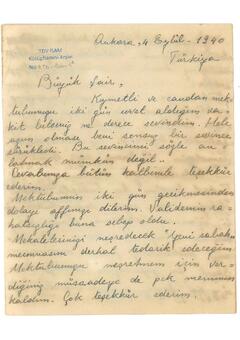 TDV İSAM
Kütüphanesi Arşivi
No
Ankara, 4 Eylûl - 1940
Türkiya
Büyük Şair,
Kıymetli ve candan mek
tubunuzu iki gün evvel aldığım va
kit bilseniz ne derece sevindim. Hele
uzun olması beni sonsuz bir sevince
sürükledi. Bu sevincimi söyle an
latmak mümkün değil..
Cevabınıza bütün kalbimle teşekkür
ederim.
Mektubumun iki gün gecikmesinden
dolayı affımızı dilerim. Validemin ra-
hatsızlığı buna sebep oldu.
Makalelerinizi neşredecek "Yeni sabah"
mecmuasını derhal tedarik edeceğim.
Mektubunuzu neşretmem için ver-
diğiniz müsaadeye de pek memnun
kaldım. Çok teşekkür ederim.